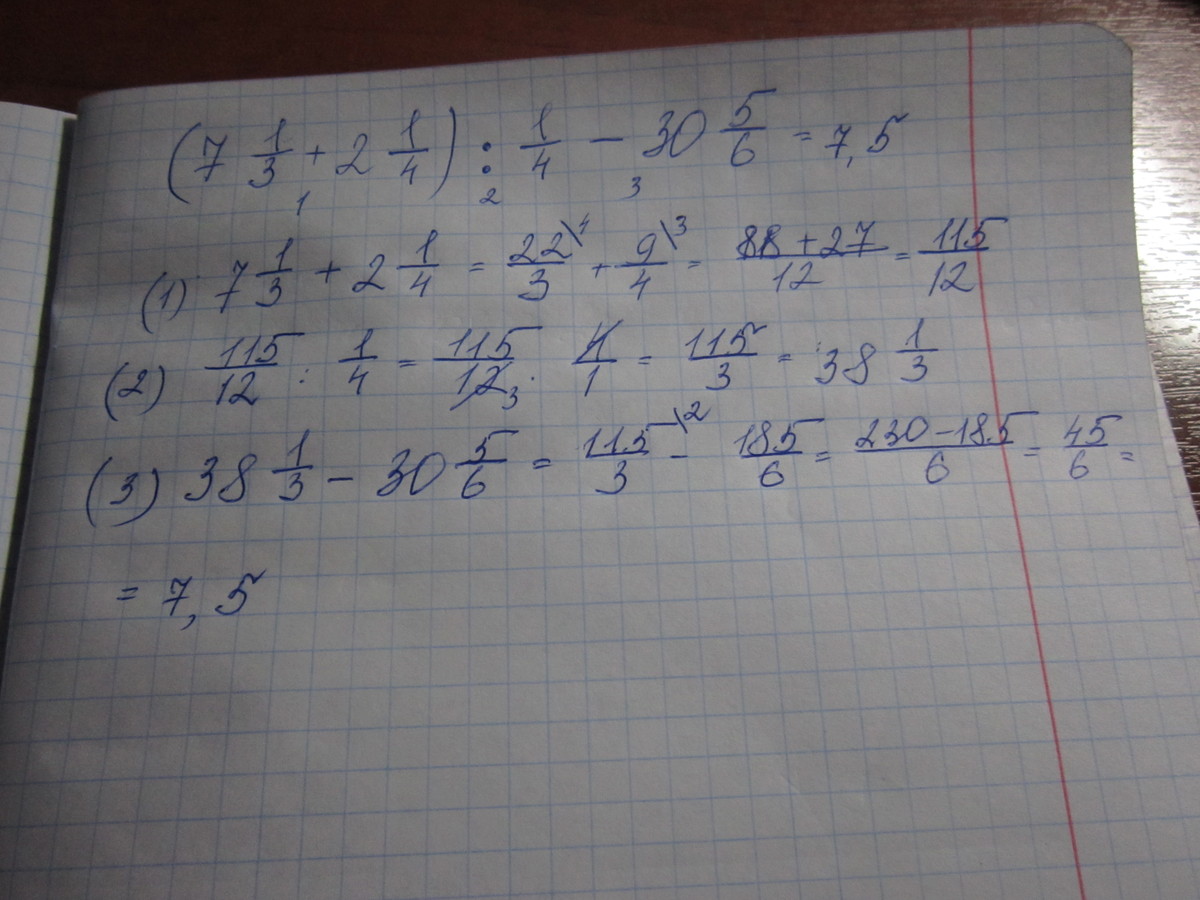 (7 1/3 + 2 1/4) : 1/4 − 30 5/6 = 7,5
1 2 3
(1) 7 1/3 + 2 1/4 = 22/3 \4 + 9/4 \3 = 88+27/12 = 115/12
(2) 115/12 : 1/4 = 115/12 3 · 4/1 = 115/3 = 38 1/3
(3) 38 1/3 − 30 5/6 = 115/3 \2 − 185/6 = 230−185/6 = 45/6 =
= 7,5